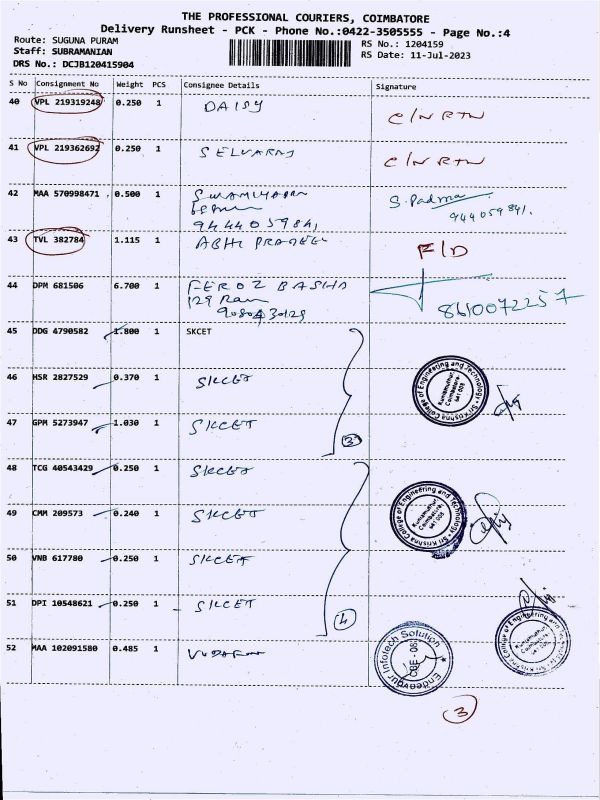 THE PROFESSIONAL COURIERS, COIMBATORE
Delivery Runsheet - PCK - Phone No.:0422-3505555 - Page No.:4
Route: SUGUNA PURAM
Staff: SUBRAMANIAN
DRS No.: DCJB120415904
RS No.: 1204159
RS Date: 11-Jul-2023
S No Consignment No Weight PCS Consignee Details Signature
40 VPL 219319248 0.250 1 DAISY C/N RTN
41 VPL 219362692 0.250 1 SELVARAJ C/N RTN
42 MAA 570998471 0.500 1 S. Padma
944059841.
43 TVL 382784 1.115 1 ABHI PRADEEL F/D
44 DPM 681506 6.700 1 FEROZ BASHA
129 Ram
9080430129
8610072257
45 DDG 4790582 1.800 1 SKCET
46 HSR 2827529 0.370 1 SKCET
47 GPM 5273947 1.030 1 SKCET
3
Sri Krishna College of Engineering and Technology
Kuniamuthur, Coimbatore- 641 008
48 TCG 40543429 0.250 1 SKCET
49 CMM 209573 0.240 1 SKCET
Sri Krishna College of Engineering and Technology
Kuniamuthur, Coimbatore- 641 008
50 VNB 617780 0.250 1 SKCET
51 DPI 10548621 0.250 1 SKCET
4
Sri Krishna College of Engineering and Technology
Kuniamuthur, Coimbatore- 641 008
52 MAA 102091580 0.485 1
Endeavour Infotech Solution
CBE - 08
3